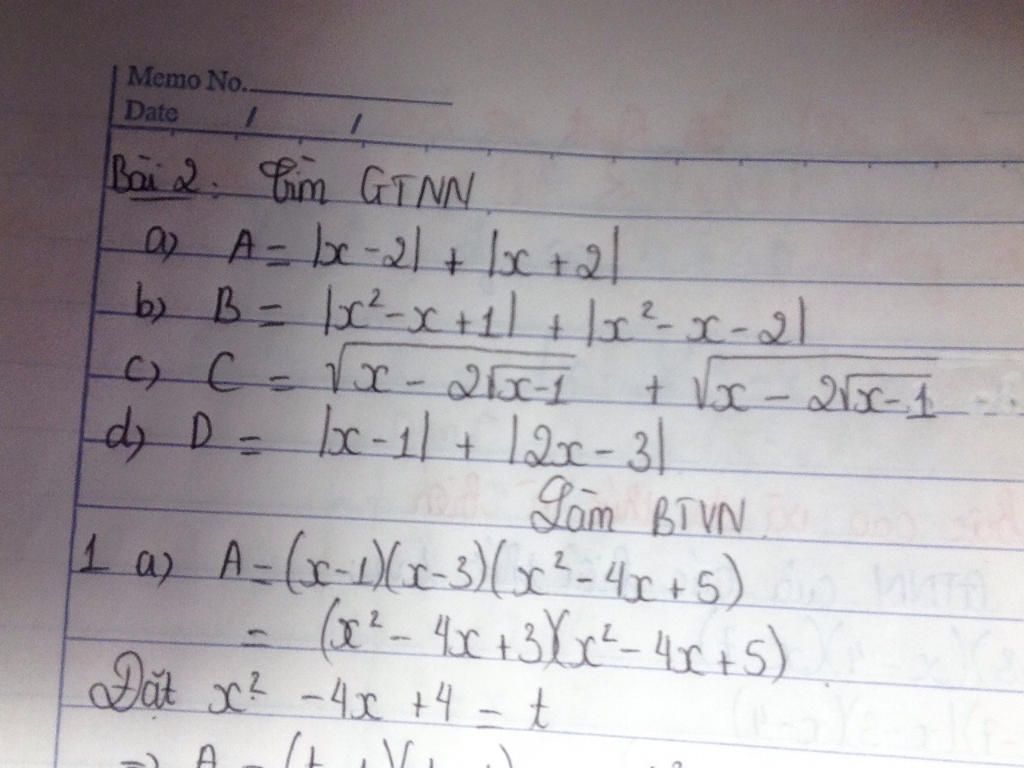 Memo No.
Date / /
Bài 2. Tìm GTNN
a) A = |x - 2| + |x + 2|
b) B = |x² - x + 1| + |x² - x - 2|
c) C = √(x - 2√(x-1)) + √(x - 2√(x-1))
d) D = |x - 1| + |2x - 3|
Làm BTVN
1 a) A = (x-1)(x-3)(x² - 4x + 5)
= (x² - 4x + 3)(x² - 4x + 5)
Đặt x² - 4x + 4 = t